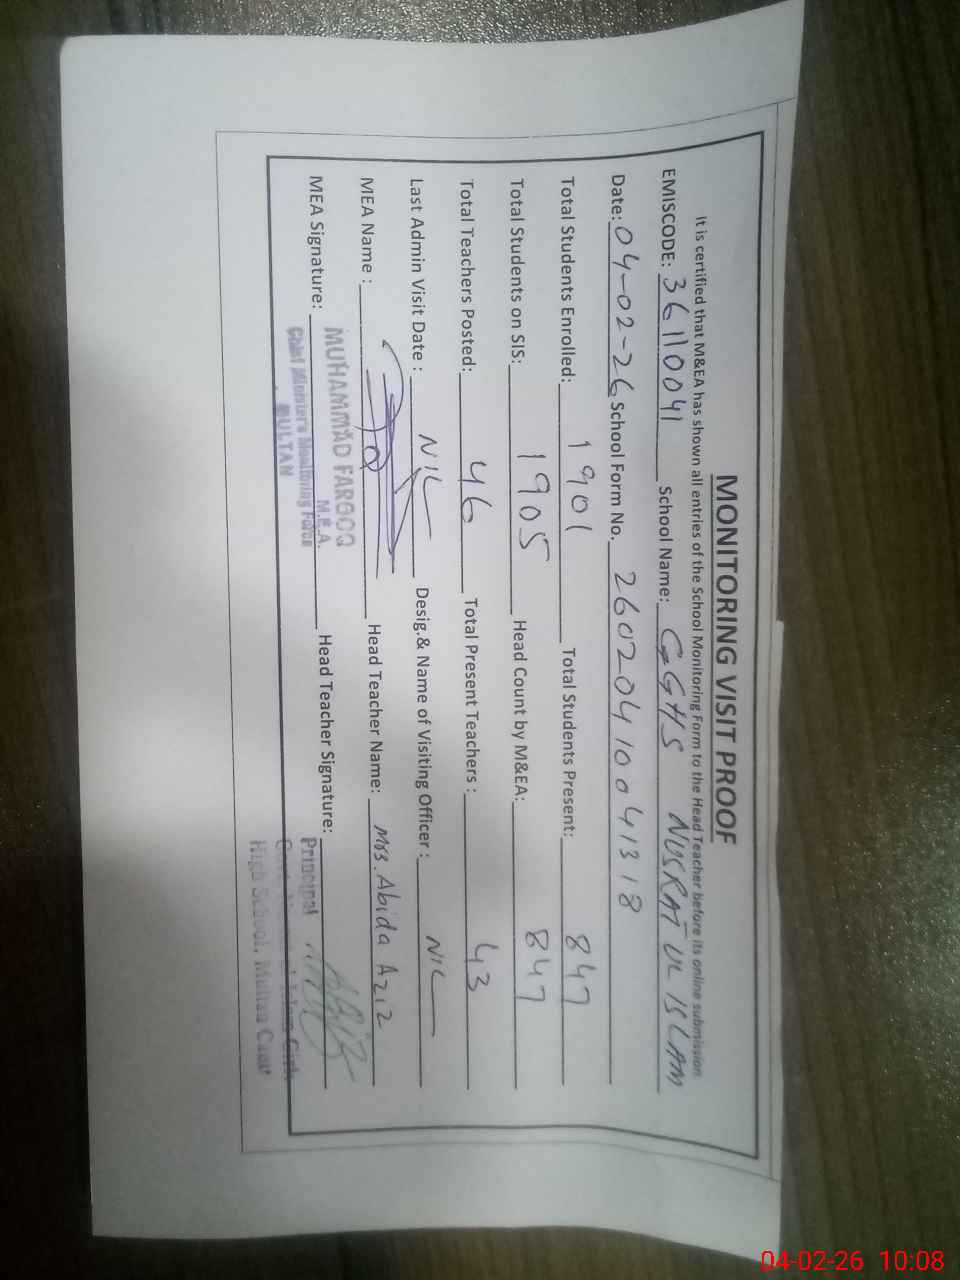 MONITORING VISIT PROOF
It is certified that M&EA has shown all entries of the School Monitoring Form to the Head Teacher before its online submission
EMISCODE: 36110041 School Name: GGHS NUSRAT UL ISLAM
Date: 04-02-26 School Form No. 26020410041318
Total Students Enrolled: 1901 Total Students Present: 847
Total Students on SIS: 1905 Head Count by M&EA: 847
Total Teachers Posted: 46 Total Present Teachers : 43
Last Admin Visit Date : NIL Desig.& Name of Visiting Officer : NIL
MEA Name : Head Teacher Name: Mrs. Abida Aziz
MEA Signature: Head Teacher Signature:
MUHAMMAD FAROOQ
M.E.A.
Chief Minister's Monitoring Force
MULTAN
Principal
Girls
High School, Multan Cantt
04-02-26 10:08